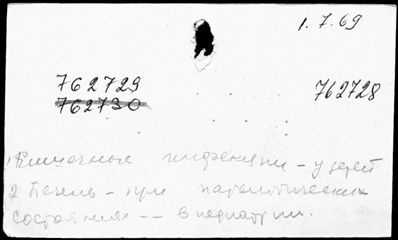 1.7.69
762729
762728
762730
1 Кишечные инфекции – у детей
2 Печень – при патологических
состояниях -- в педиатрии.